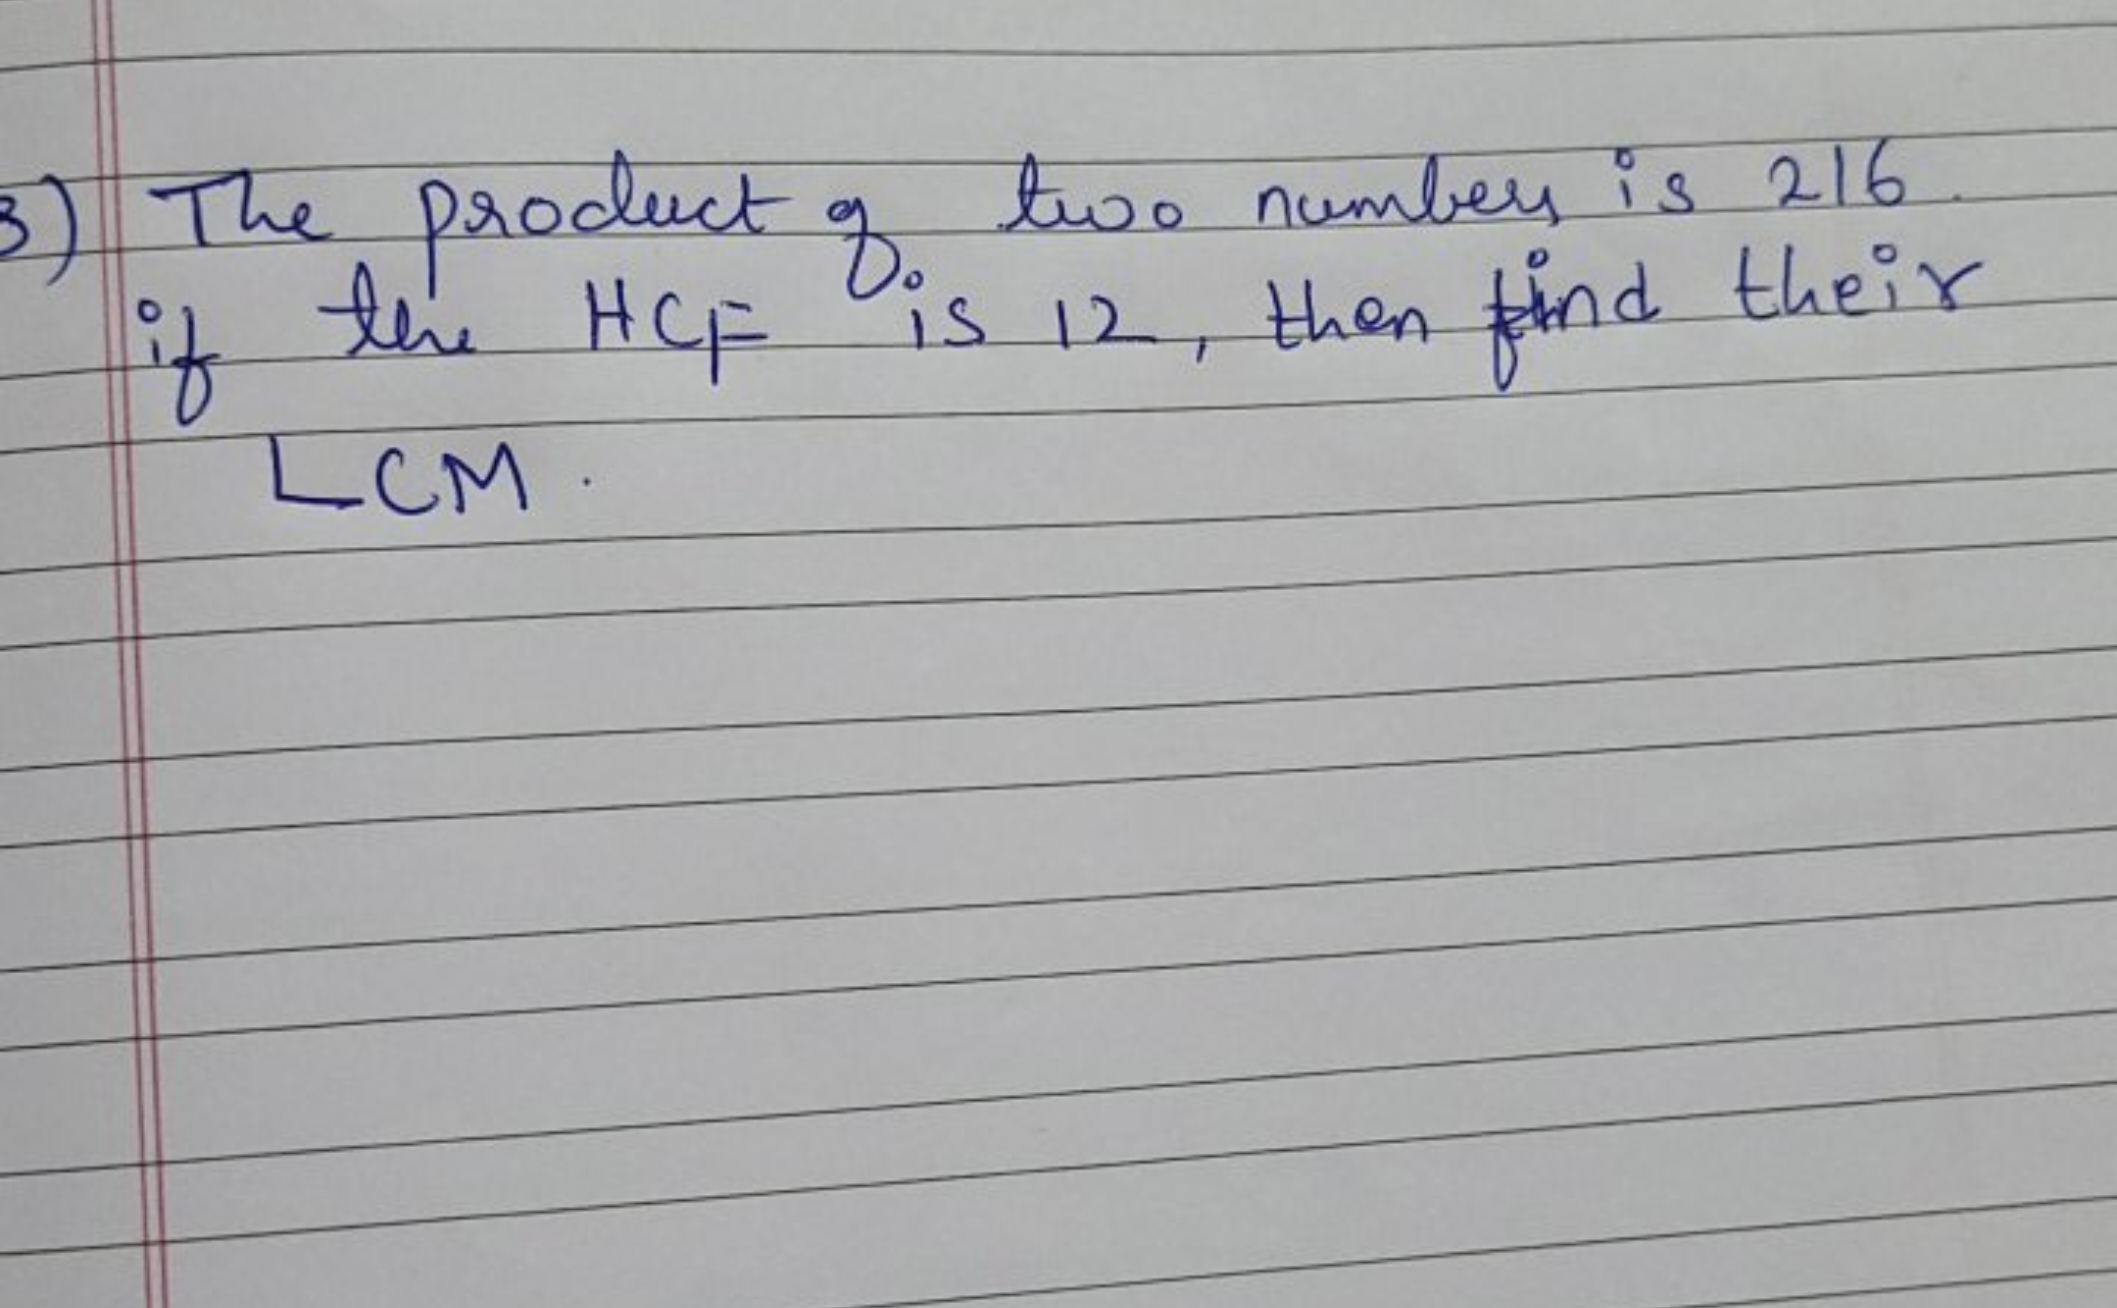 3) The product of two numbers is 216.
if the HCF is 12, then find their
LCM.